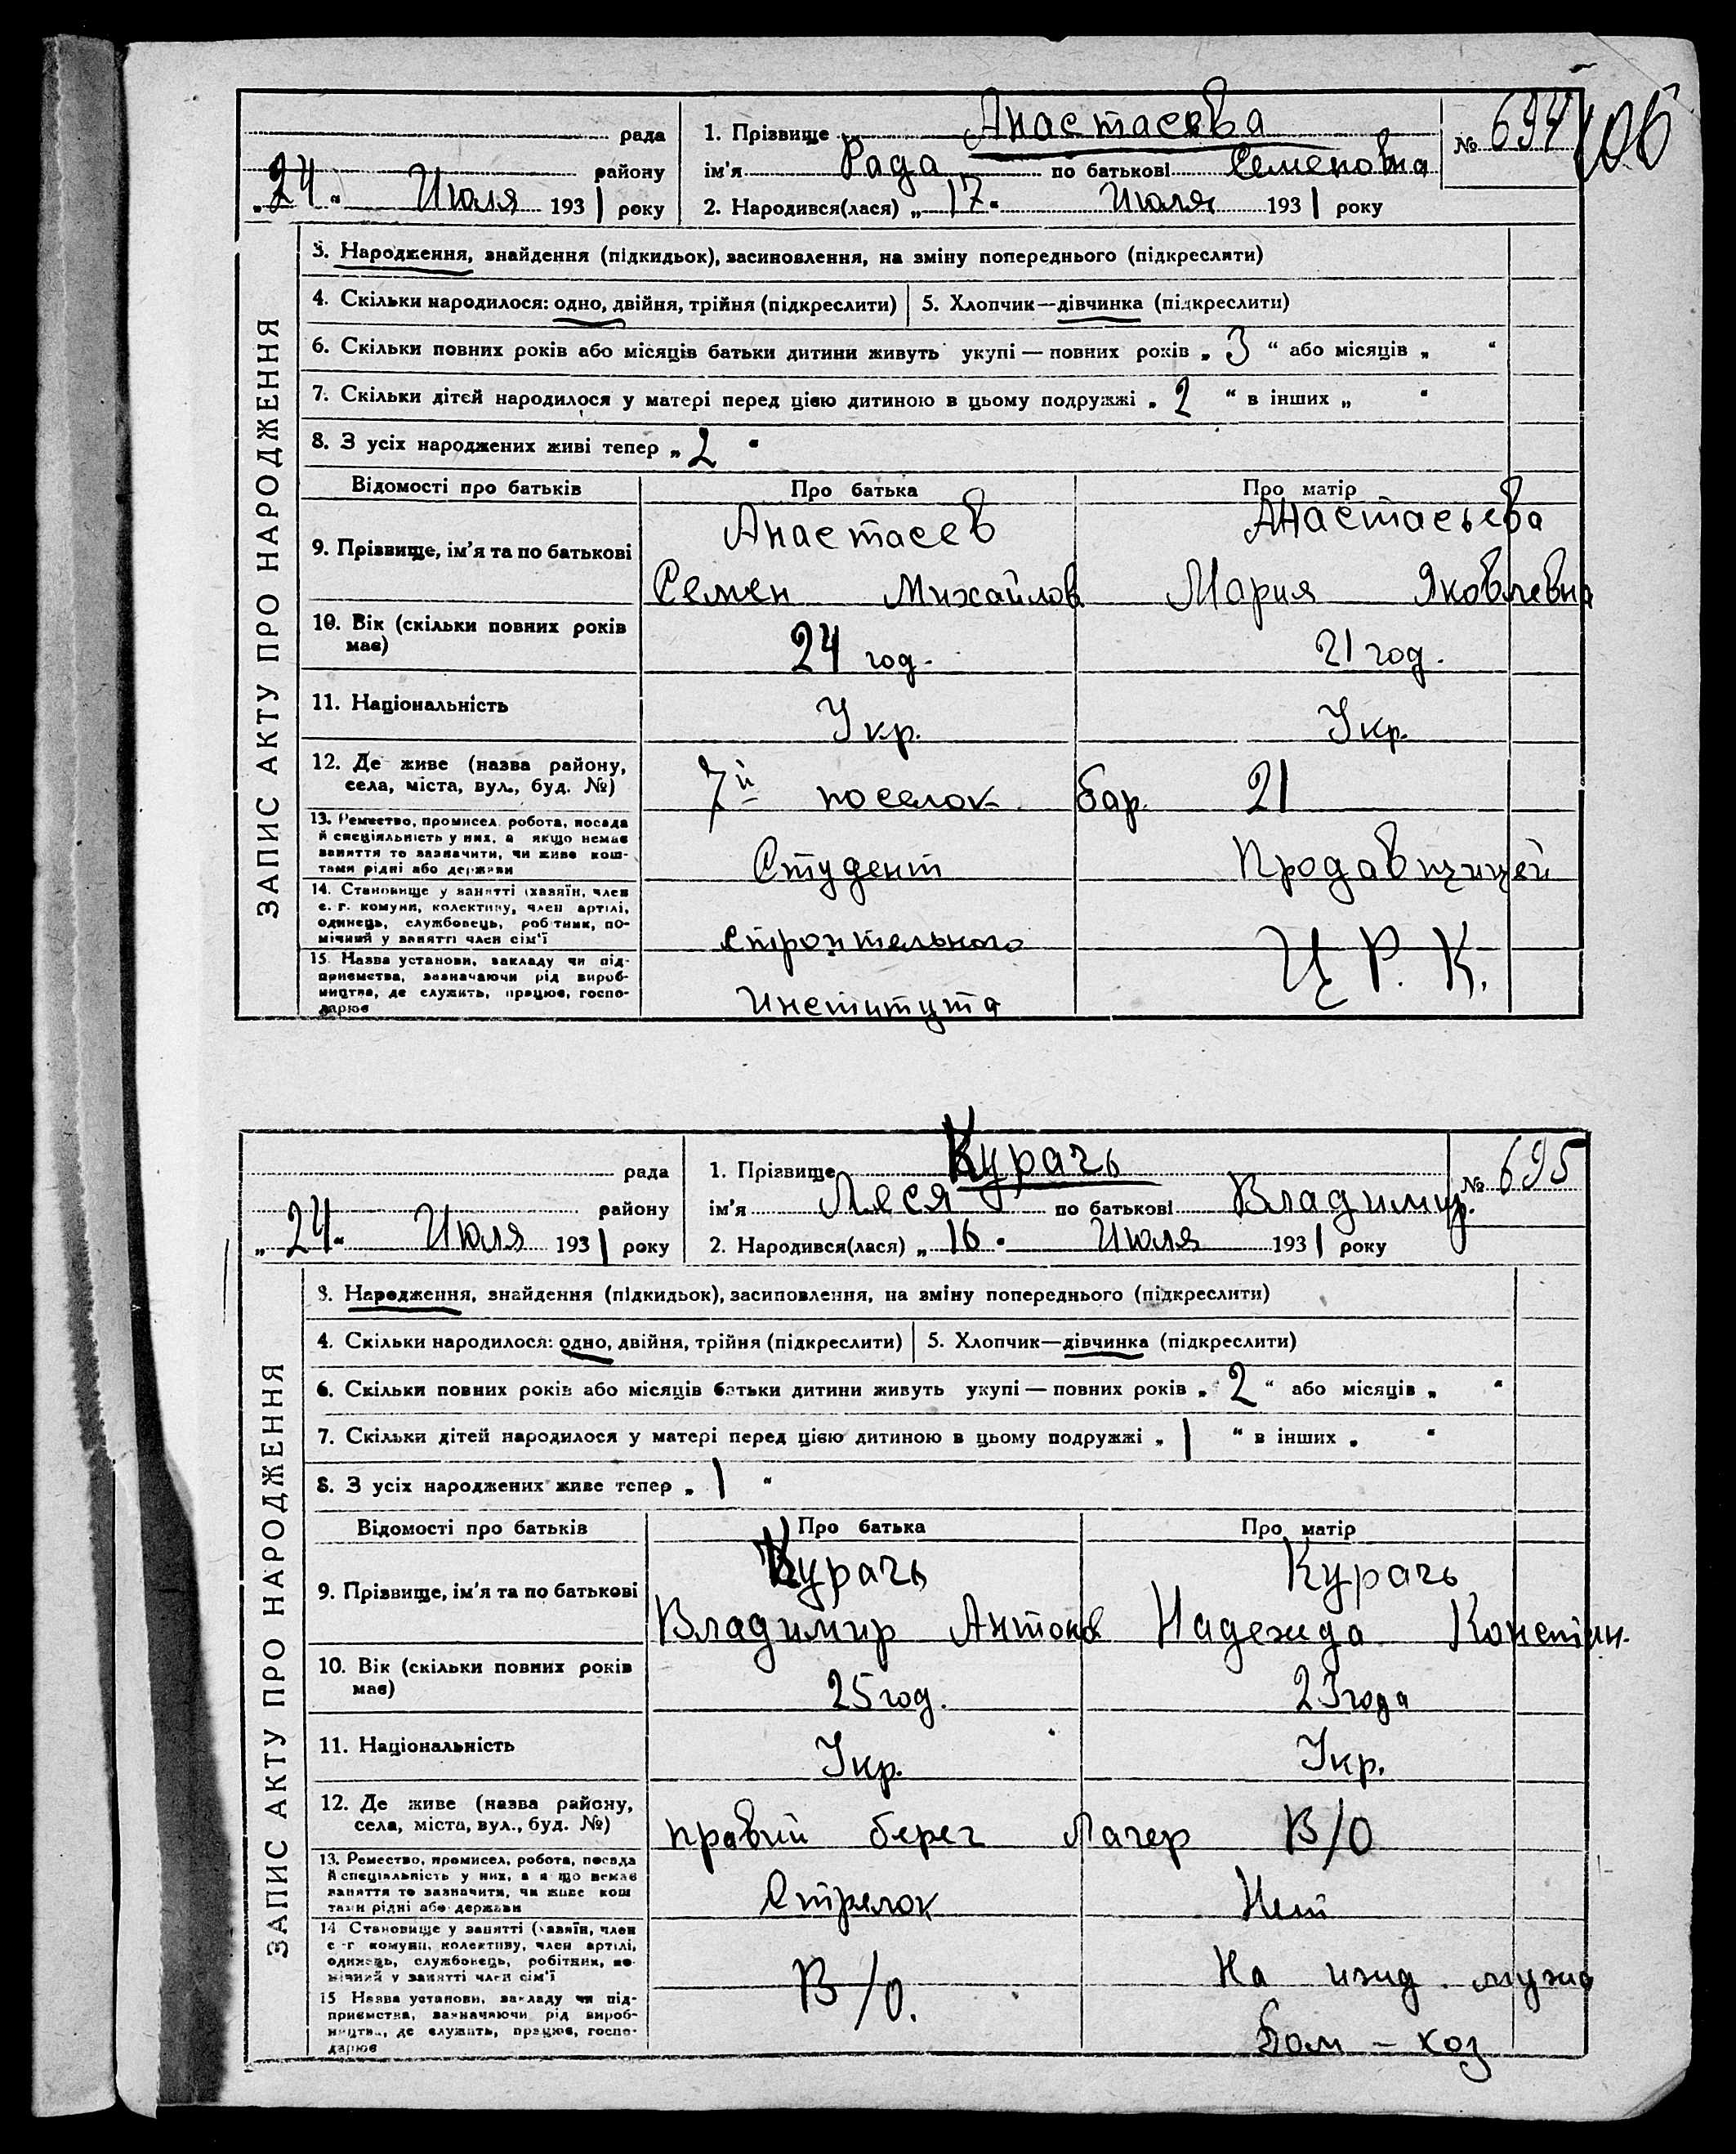 рада
району
„24“ Июля 1931 року
1. Прізвище Анастасєва
№ 694
106
ім'я Рада по батькові Семеновна
2. Народився(лася) „17“ Июля 1931 року
ЗАПИС АКТУ ПРО НАРОДЖЕННЯ
3. Народження, знайдення (підкидьок), засиновлення, на зміну попереднього (підкреслити)
4. Скільки народилося: одно, двійня, трійня (підкреслити) 5. Хлопчик—дівчинка (підкреслити)
6. Скільки повних років або місяців батьки дитини живуть укупі — повних років „3“ або місяців „ “
7. Скільки дітей народилося у матері перед цією дитиною в цьому подружжі „2“ в інших „ “
8. З усіх народжених живі тепер „2“
Відомості про батьків Про батька Про матір
9. Прізвище, ім'я та по батькові
Анастасев Анастасьева
Семен Михайлов Мария Яковлевна
10. Вік (скільки повних років
має)
24 год. 21 год.
11. Національність Укр. Укр.
12. Де живе (назва району,
села, міста, вул., буд. №)
7й поселок бар. 21
13. Ремество, промисел, робота, посада
й спеціяльність у них, а якщо немає
заняття то зазначити, чи живе кош-
тами рідні або держави
Студент Продавщицей
14. Становище у занятті (хазяїн, член
с.-г. комуни, колективу, член артілі,
одинець, службовець, робітник, по-
мічний у занятті член сім'ї
Строительного Ц. Р. К.
15. Назва установи, закладу чи під-
приємства, зазначаючи рід вироб-
ництва, де служить, працює, госпо-
дарює
Института
рада
району
„24“ Июля 1931 року
1. Прізвище Курачь
№ 695
ім'я Леся по батькові Владимир.
2. Народився(лася) „16“ Июля 1931 року
ЗАПИС АКТУ ПРО НАРОДЖЕННЯ
3. Народження, знайдення (підкидьок), засиновлення, на зміну попереднього (підкреслити)
4. Скільки народилося: одно, двійня, трійня (підкреслити) 5. Хлопчик—дівчинка (підкреслити)
6. Скільки повних років або місяців батьки дитини живуть укупі — повних років „2“ або місяців „ “
7. Скільки дітей народилося у матері перед цією дитиною в цьому подружжі „1“ в інших „ “
8. З усіх народжених живе тепер „1“
Відомості про батьків Про батька Про матір
9. Прізвище, ім'я та по батькові
Курачь Курачь
Владимир Антонов Надежда Констан.
10. Вік (скільки повних років
має)
25 год. 23 года
11. Національність Укр. Укр.
12. Де живе (назва району,
села, міста, вул., буд. №)
правий берег Лагер В/О
13. Ремество, промисел, робота, посада
й спеціяльність у них, а якщо немає
заняття то зазначити, чи живе кош
тами рідні або держави
Стрелок Нет
14 Становище у занятті (хазяїн, член
с-г комуни, колективу, член артілі,
одинець, службовець, робітник, по-
мічний у занятті член сім'ї
В/О. На ижд. мужа
15 Назва установи, закладу чи під-
приємства, зазначаючи рід вироб-
ництва, де служить, працює, госпо-
дарює
Дом – хоз